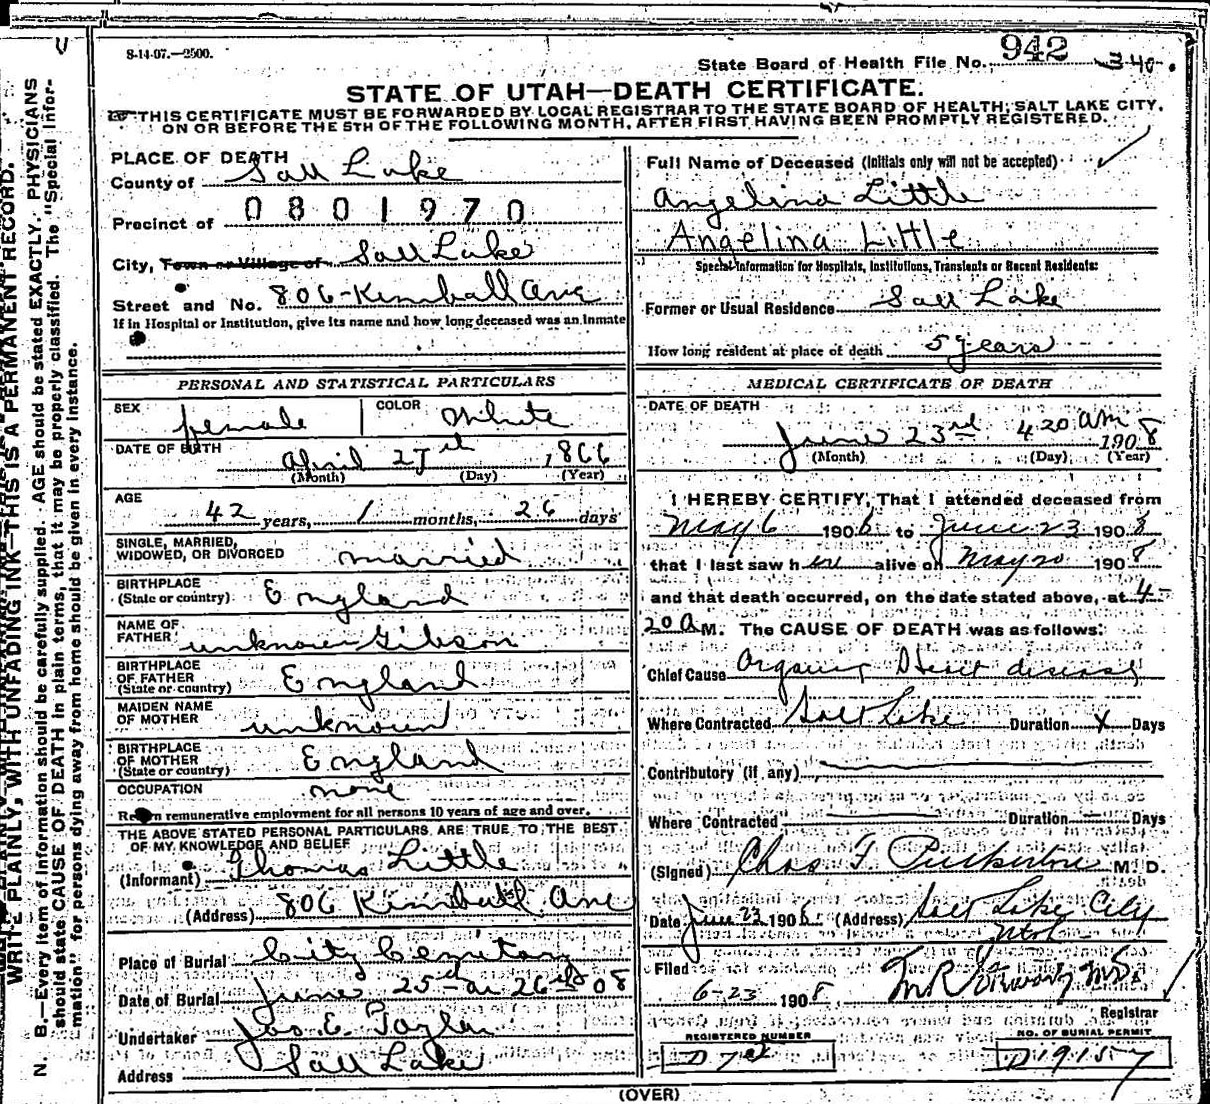 8-14-07.—2500.
State Board of Health File No. 942 340
STATE OF UTAH—DEATH CERTIFICATE.
THIS CERTIFICATE MUST BE FORWARDED BY LOCAL REGISTRAR TO THE STATE BOARD OF HEALTH, SALT LAKE CITY,
ON OR BEFORE THE 5TH OF THE FOLLOWING MONTH, AFTER FIRST HAVING BEEN PROMPTLY REGISTERED.
PLACE OF DEATH
County of Salt Lake
Precinct of 0801970
City, Town or Village of Salt Lake
Street and No. 806 Kimball Ave
If in Hospital or Institution, give its name and how long deceased was an inmate
PERSONAL AND STATISTICAL PARTICULARS
SEX female COLOR White
DATE OF BIRTH April 27th 1866
(Month) (Day) (Year)
AGE
42 years, 1 months, 26 days
SINGLE, MARRIED,
WIDOWED, OR DIVORCED married
BIRTHPLACE
(State or country) England
NAME OF
FATHER unknown Gibson
BIRTHPLACE
OF FATHER
(State or country) England
MAIDEN NAME
OF MOTHER unknown
BIRTHPLACE
OF MOTHER
(State or country) England
OCCUPATION none
Return remunerative employment for all persons 10 years of age and over.
THE ABOVE STATED PERSONAL PARTICULARS ARE TRUE TO THE BEST
OF MY KNOWLEDGE AND BELIEF
(Informant) Thomas Little
(Address) 806 Kimball Ave
Place of Burial City Cemetary
Date of Burial June 25th or 26th 08
Undertaker Jos E. Taylor
Address Salt Lake
Full Name of Deceased (Initials only will not be accepted)
Angelina Little
Angelina Little
Special Information for Hospitals, Institutions, Transients or Recent Residents:
Former or Usual Residence Salt Lake
How long resident at place of death 5 years
MEDICAL CERTIFICATE OF DEATH
DATE OF DEATH
June 23rd 4 20 AM 1908
(Month) (Day) (Year)
I HEREBY CERTIFY, That I attended deceased from
May 6 1906 to June 23 1908
that I last saw her alive on May 20 1908
and that death occurred, on the date stated above, at 4-
20 A M. The CAUSE OF DEATH was as follows:
Chief Cause Organic Heart disease
Where Contracted Salt Lake Duration X Days
Contributory (if any)
Where Contracted Duration Days
(Signed) Chas F. M. D.
Date June 23 1908 (Address) Salt Lake City
Utah
Filed
6-23 1908 M.D.
Registrar
REGISTERED NUMBER
NO. OF BURIAL PERMIT
D19157
(OVER)
N. B.—Every item of information should be carefully supplied. AGE should be stated EXACTLY. PHYSICIANS
should state CAUSE OF DEATH in plain terms, that it may be properly classified. The "Special Infor-
mation" for persons dying away from home should be given in every instance.
WRITE PLAINLY, WITH UNFADING INK—THIS IS A PERMANENT RECORD.